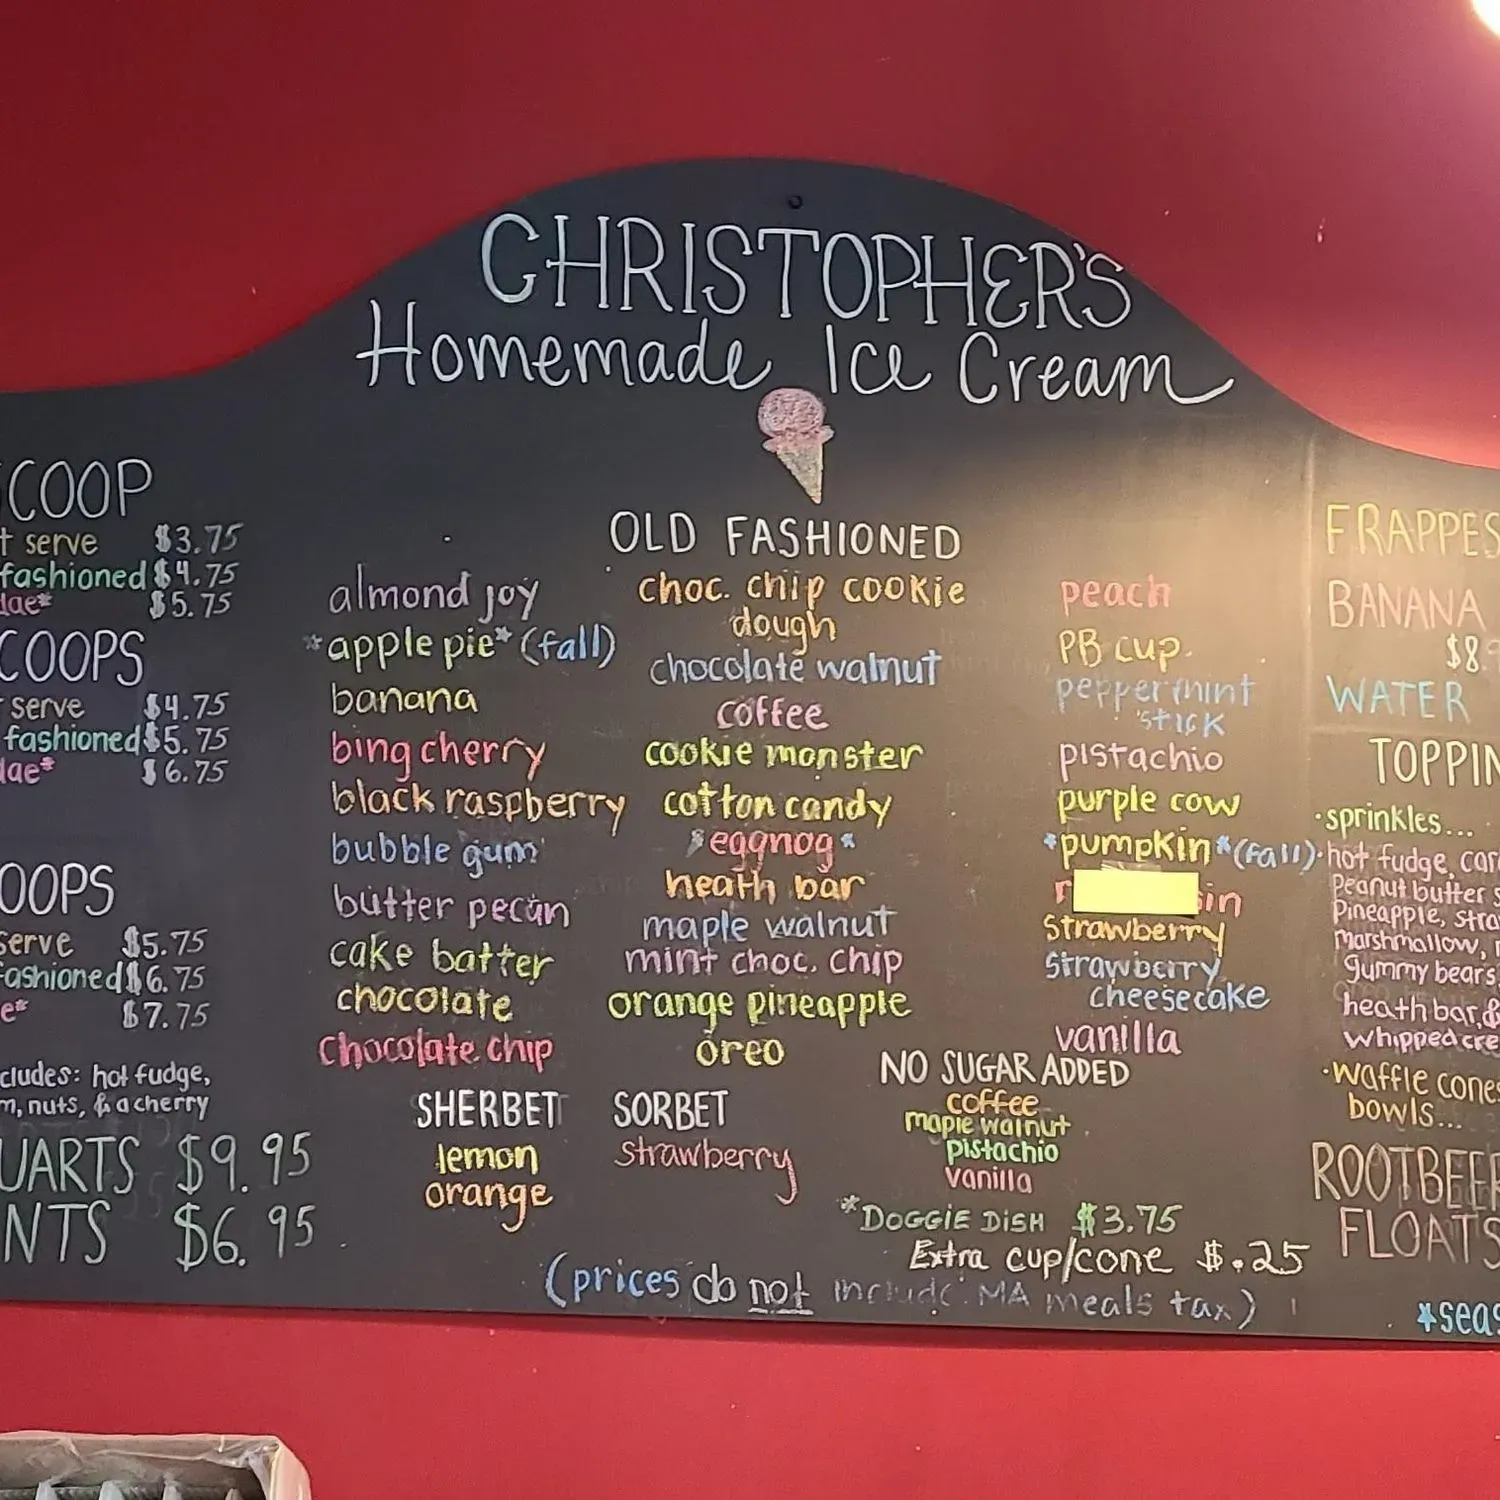 CHRISTOPHER'S
Homemade Ice Cream
COOP
t serve $3.75
fashioned $4.75
dae* $5.75
COOPS
serve $4.75
fashioned $5.75
dae* $6.75
OOPS
serve $5.75
fashioned $6.75
e* $7.75
cludes: hot fudge,
m, nuts, & a cherry
UARTS $9.95
NTS $6.95
OLD FASHIONED
almond joy
*apple pie* (fall)
banana
bing cherry
black raspberry
bubble gum
butter pecan
cake batter
chocolate
chocolate chip
choc. chip cookie
dough
chocolate walnut
coffee
cookie monster
cotton candy
*eggnog*
heath bar
maple walnut
mint choc. chip
orange pineapple
oreo
peach
PB cup
peppermint
stick
pistachio
purple cow
*pumpkin* (fall)
strawberry
strawberry
cheesecake
vanilla
SHERBET
lemon
orange
SORBET
strawberry
NO SUGAR ADDED
coffee
maple walnut
pistachio
vanilla
*DOGGIE DISH $3.75
Extra cup/cone $.25
(prices do not include MA meals tax)
FRAPPES
BANANA
$8.
WATER
TOPPIN
·sprinkles...
·hot fudge, car
peanut butter s
pineapple, stra
marshmallow,
gummy bears
heath bar, &
whipped cre
·waffle cones
bowls...
ROOTBEER
FLOATS
*seas